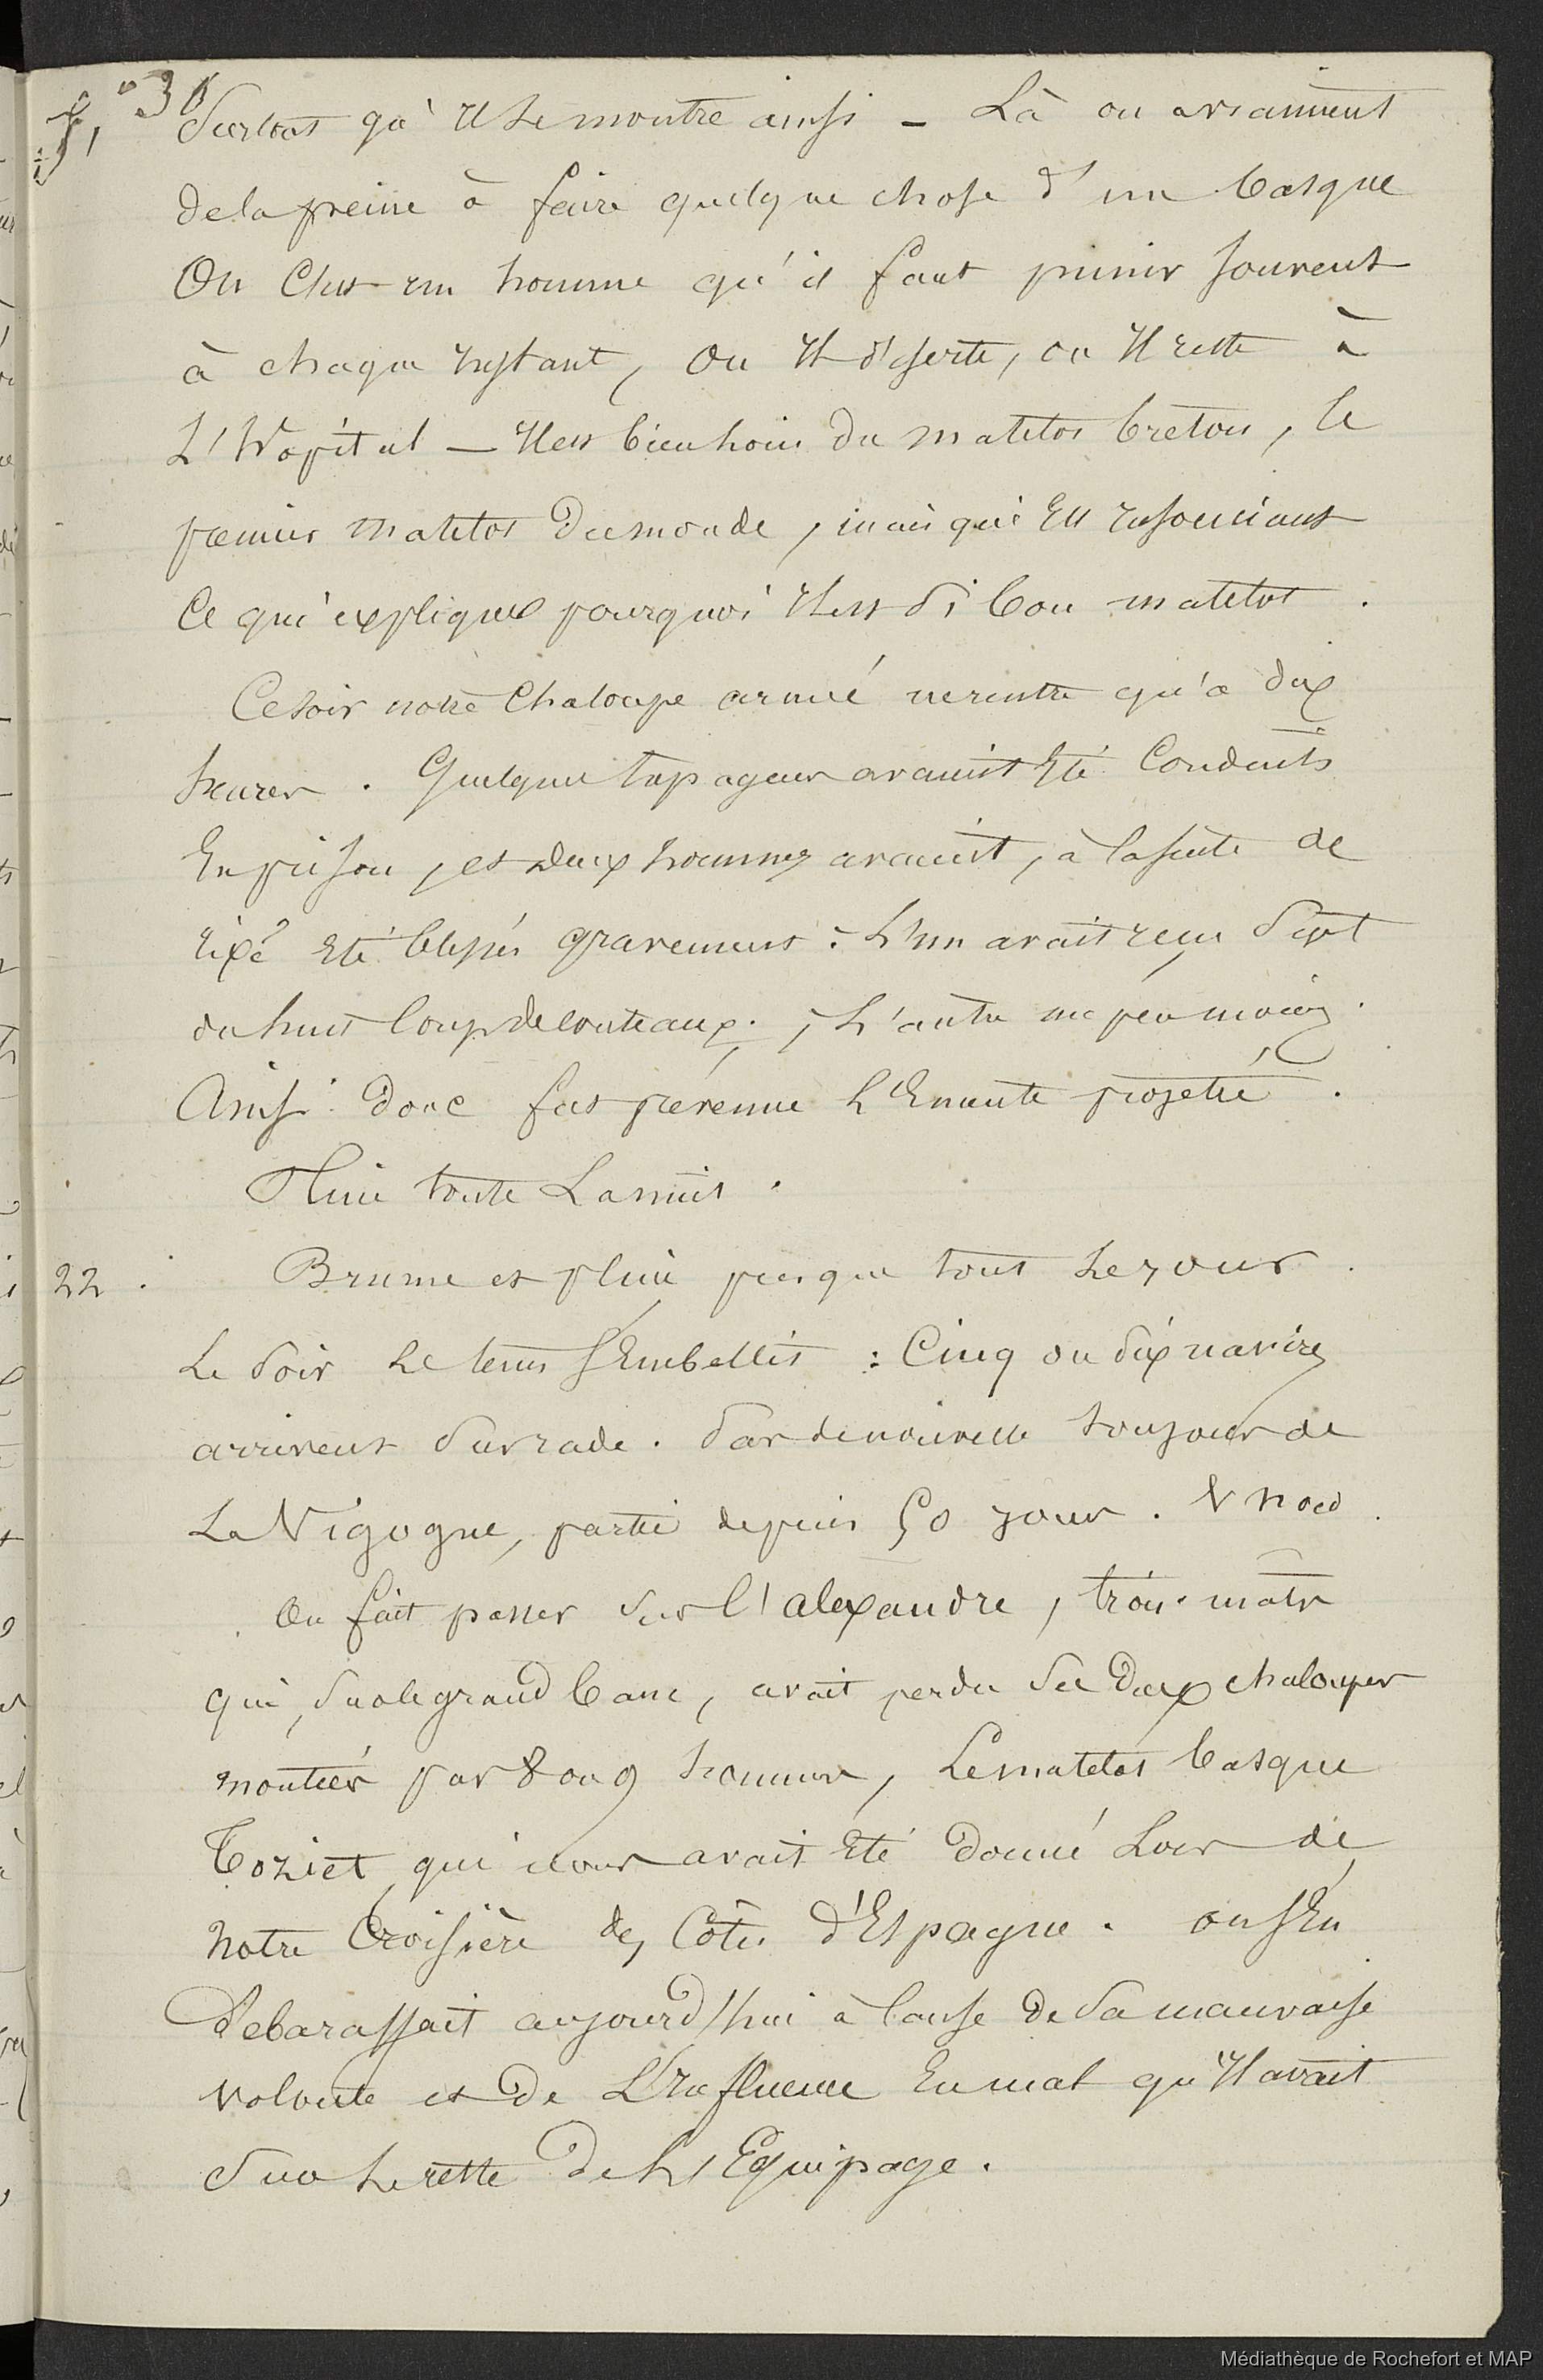 f.° 36
Surtout qu'il se montre ainsi – Là on a vraiment
de la peine à faire quelque chose d'un basque
Ou C'est un homme qu'il faut punir souvent
à chaque instant, ou il déserte, ou il reste à
L'hôpital – Il est bien loin du matelot breton, le
premier matelot du monde, mais qui est insouciant
Ce qui explique pourquoi il est si bon matelot.
Ce soir notre Chaloupe armée ne rentre qu'à dix
heures. Quelques tapageurs avaient été Conduits
En prison, et deux hommes avaient, à la suite de
rixe été blessés gravement : L'un avait reçu Sept
ou huit Coups de couteaux ; L'autre un peu moins.
Ainsi donc fut prévenue L'Emeute projetée.
Pluie toute La nuit.
22. Brume et pluie presque tout Le jour.
Le Soir Le tems s'Embellit : Cinq ou dix navires
arrivent Sur rade. Pas de nouvelle toujours de
La Vigogne, partie depuis 50 jours.
On fait passer Sur l'alexandre, trois-mats
qui, Sur le grand banc, avait perdu Ses Deux chaloupes
montées par 8 ou 9 hommes, Le matelot basque
qui nous avait Eté Donné Lors de
notre Croisière des Côtes d'Espagne. on s'En
Debarassait aujourd'hui à Cause de Sa mauvaise
volonte et de L'influence En mal qu'il avait
Sur Le reste De L'Equipage.
Médiathèque de Rochefort et MAP